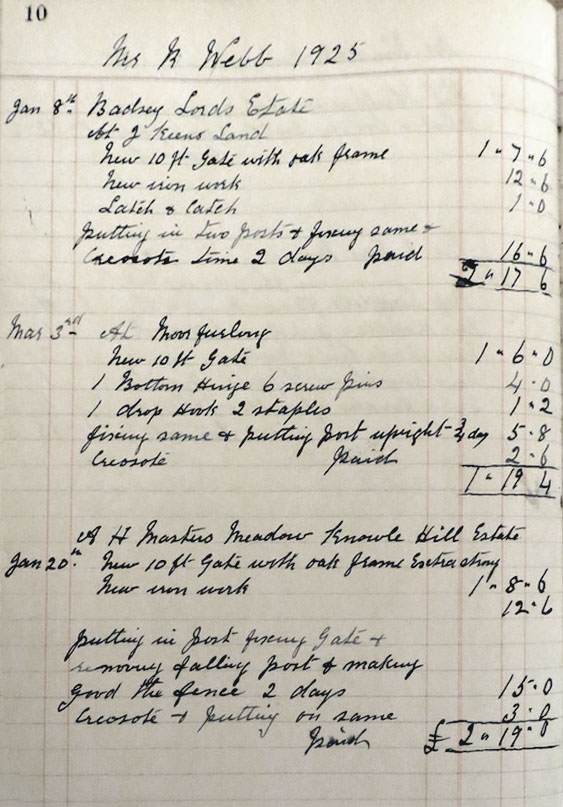 10
Mr R Webb 1925
Jan 8th Badsey Lords Estate
At J Keens Land
New 10 ft Gate with oak frame 1 " 7 " 6
New iron work 12 " 6
Latch & Catch 1 " 0
putting in two posts & fixing same &
Creosote time 2 days paid 16 " 6
2 " 17 6
Mar 3rd At Moor furlong
New 10 ft Gate 1 " 6 " 0
1 Bottom Hinge 6 screw pins 4 . 0
1 drop Hook 2 staples 1 " 2
fixing same & putting post upright 3/4 day 5 " 8
Creosote paid 2 " 6
1 " 19 4
At H Masters Meadow Knowle Hill Estate
Jan 20th New 10 ft Gate with oak frame Extra strong
New iron work 1 " 8 " 6
12 " 6
putting in Post fixing Gate &
removing falling post & making
good the fence 2 days 15 " 0
Creosote & putting on same 3 " 0
paid £ 2 " 19 " 0